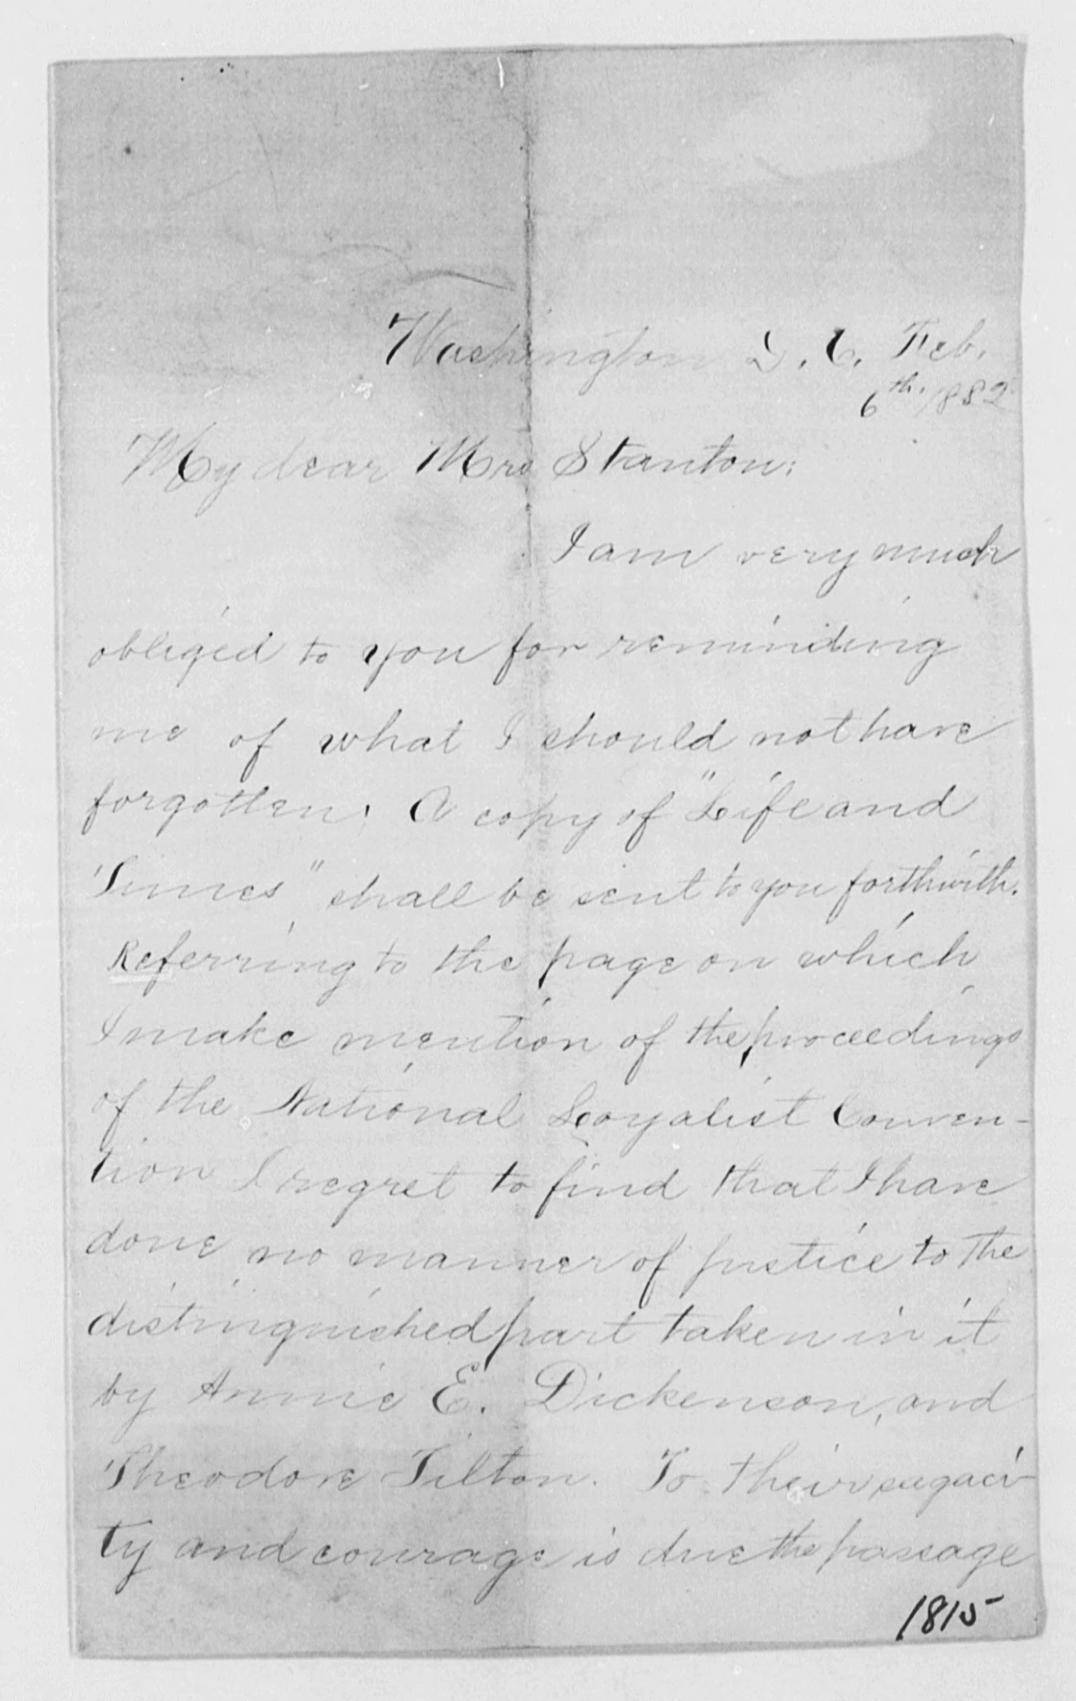 Washington D. C. Feb.
6th. 1882
My dear Mrs Stanton:
I am very much
obliged to you for reminding
me of what I should not have
forgotten. A copy of "Life and
Times" shall be sent to you forthwith.
Referring to the page on which
I make mention of the proceedings
of the National Loyalist Conven-
tion I regret to find that I have
done no manner of justice to the
distinguished part taken in it
by Annie E. Dickenson, and
Theodore Tilton. To their sagaci-
ty and courage is due the passage
1815